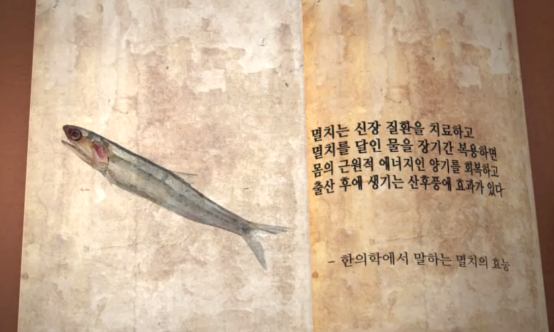 멸치는 신장 질환을 치료하고
멸치를 달인 물을 장기간 복용하면
몸의 근원적 에너지인 양기를 회복하고
출산 후에 생기는 산후풍에 효과가 있다
- 한의학에서 말하는 멸치의 효능